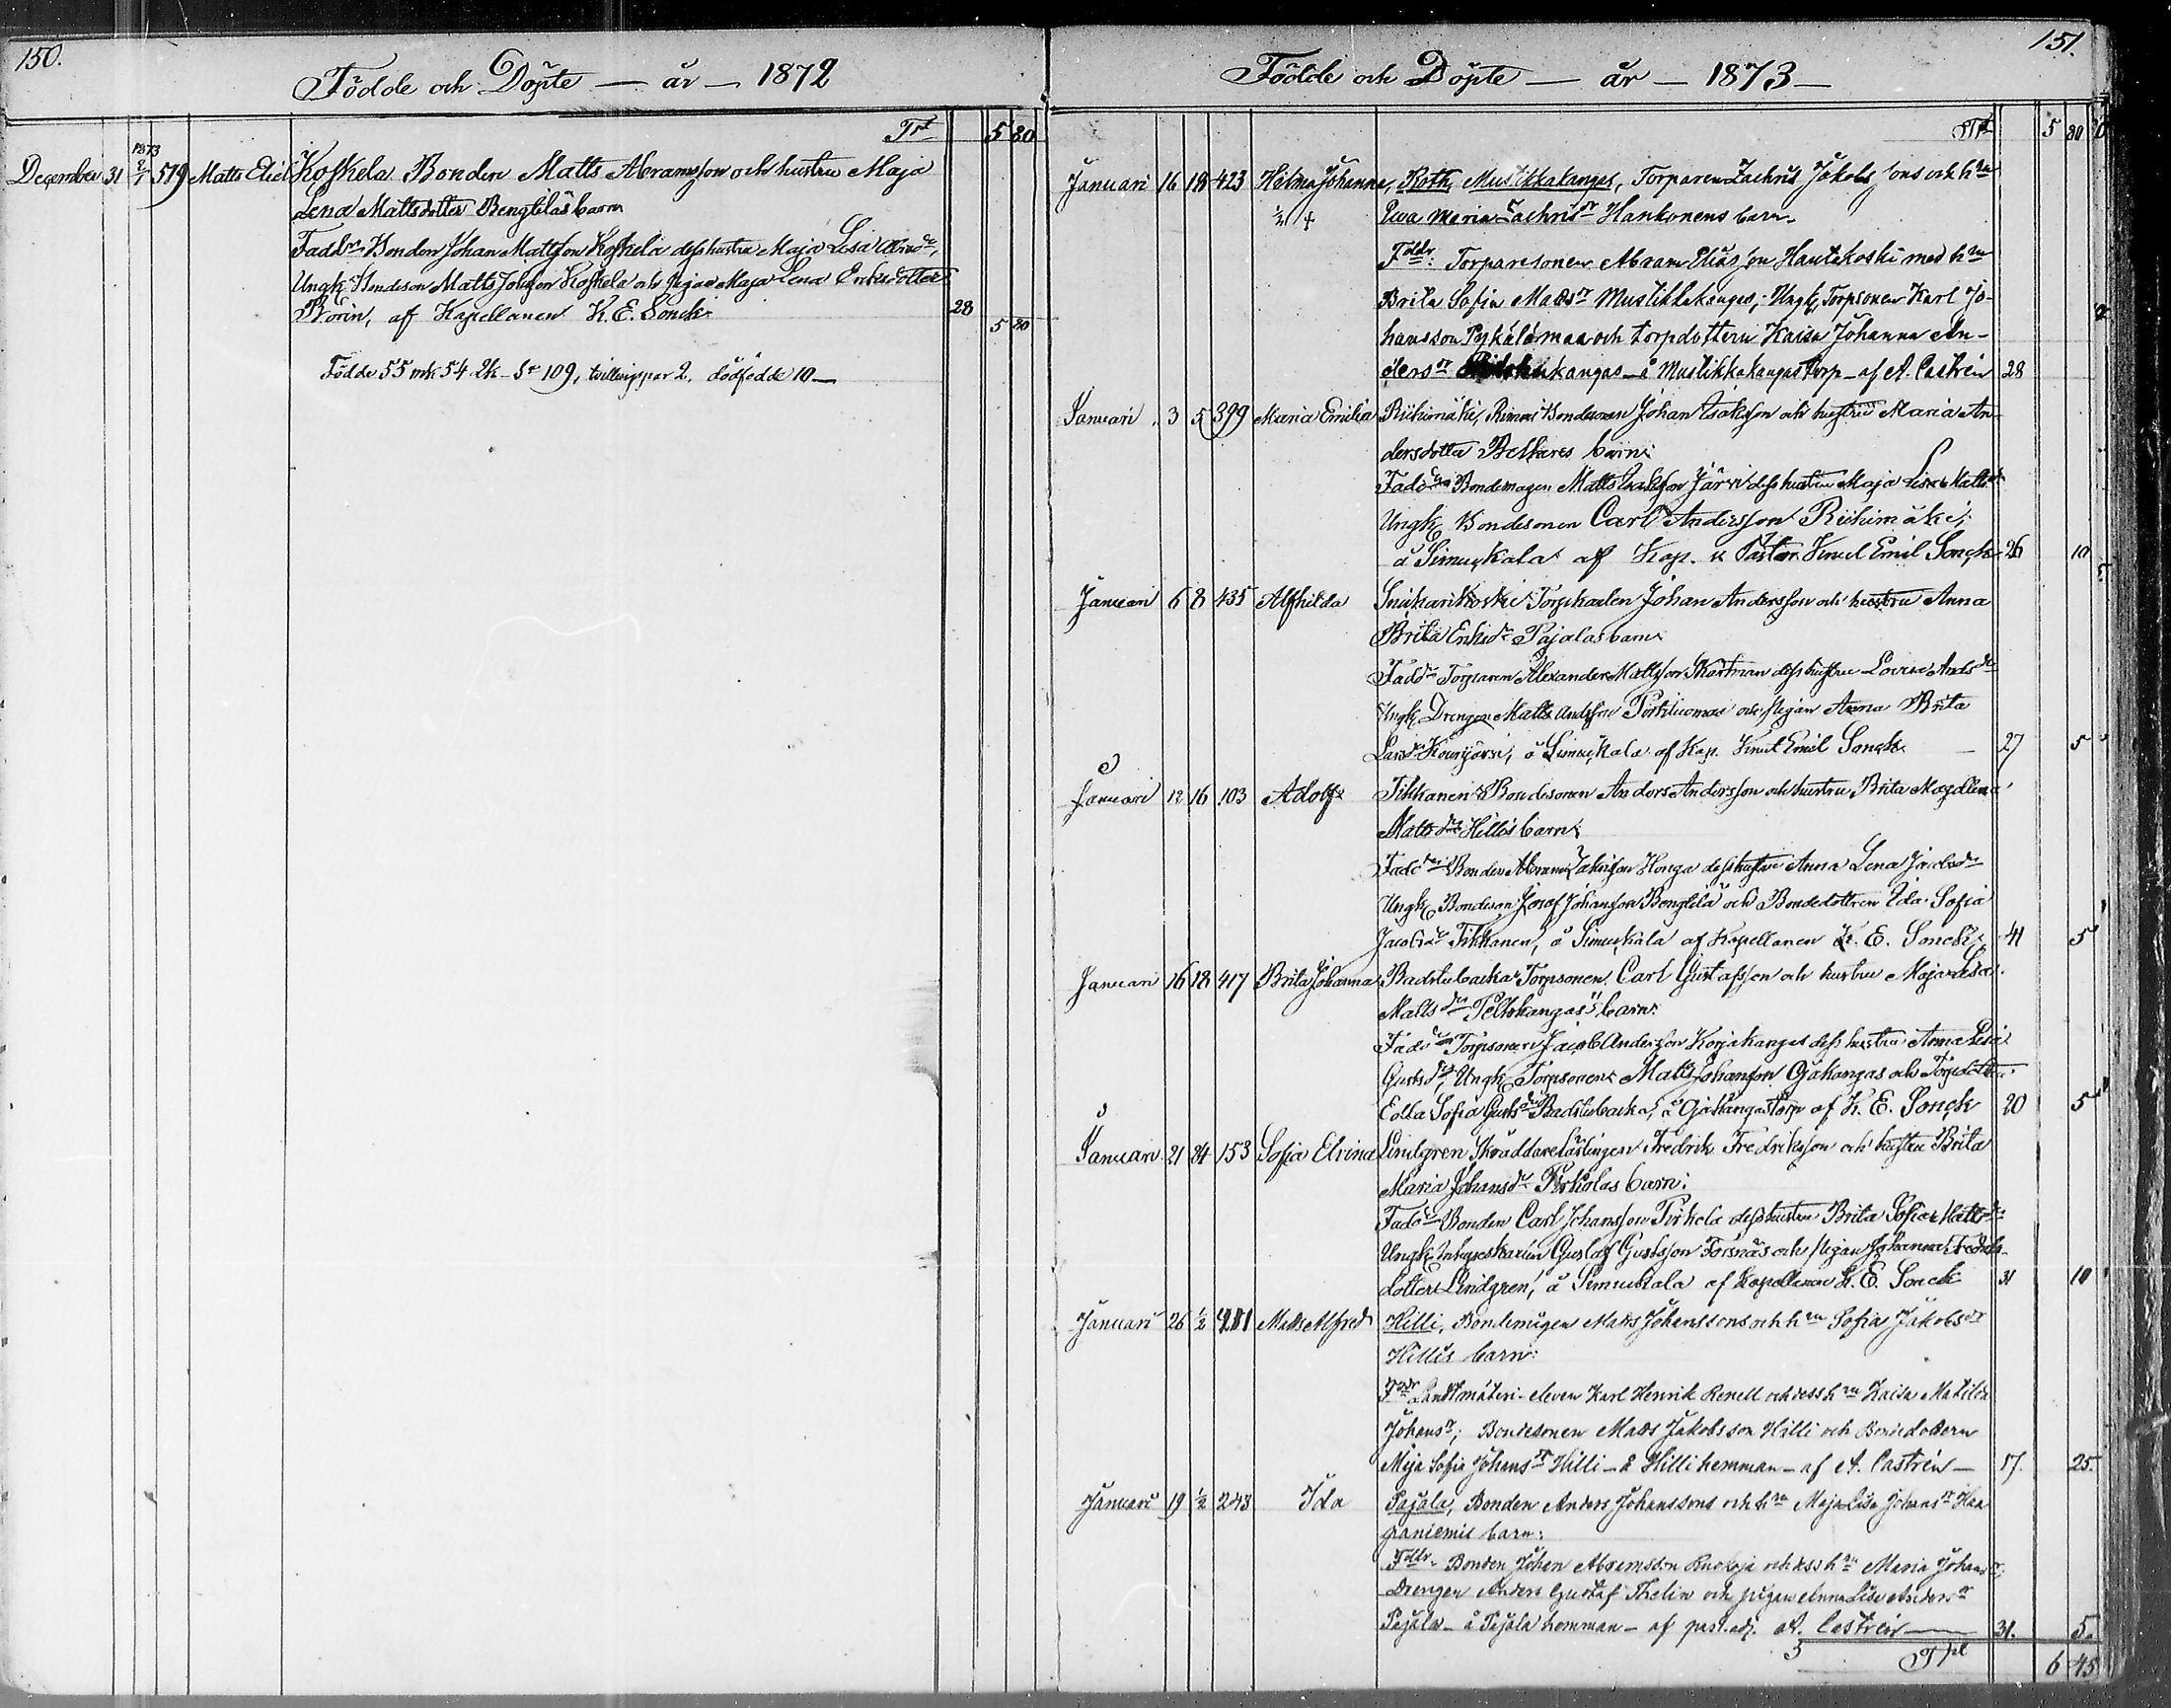 150.
Födde och Döpte — år — 1872
Trt 5 80
December 31 1873 2/1 519 Matts Eliel Koskela Bonden Matts Abramsson och hustru Maja
Lena Mattsdotter Bengtiläs barn
Faddr Bonden Johan Mattsson Koskela dess hustru Maja Lisa
Ungk Bondeson Matts Johsson Koskela och pigan Maja Lena Eriksdotter
af Kapellanen K. E. Sonck 28
5 80
Födde 55 mk 54 2k - Sa 109, tvillingpar 2, dödfödde 10 —
151.
Födde och Döpte — år — 1873 —
Trt 5 80
Januari 16 18 423 Hilma Johanna, Roth, Mustikkakangas, Torparen Zachris Jakobssons och hru
1/2 † Ewa Maria Zachrisdr Hankonens barn.
Fddr: Torparesonen Abram Eliasson Hautakoski med hru
Brita Sofia Matsdr Mustikkakangas; Ungk Torpsonen Karl Jo-
hansson Pykälämaa och torpdottern Kaisa Johanna An-
dersdr kangas — å Mustikkakangas torp — af A. Castrén 28
Januari 3 5 399 Maria Emilia Riihimäki, Bondesonen Johan Isaksson och hustru Maria An-
dersdotter barn;
Faddr Bondemågen Matts Isaksson Järvi dess hustru Maja Lisa Mattsdr
Ungk Bondesonen Carl Andersson Riihimäki;
å Simuskala af Kap. u Pastor Knut Emil Sonck 26 10
Januari 6 8 435 Alfhilda Torpkarlen Johan Andersson och hustru Anna
Brita Eriksdr Pajalas barn
Faddr Torparen Alexander Mattsson dess hustru Lovisa Andsdr
Ungk Drengen Matts Andsson och pigan Anna Brita
Larsdr å Simuskala af Kap. Knut Emil Sonck — 27 5
Januari 12 16 103 Adolf Tikkanen Bondesonen Anders Andersson och hustru Brita Magdlena
Mattsdr Hillis barn;
Faddr Bonden Abram Jakobsson Honga dess hustru Anna Lena Jacobsdr
Ungk Bondeson Josef Johansson Bengtilä och Bondedottren Ida Sofia
Jacobsdr Tikkanen, å Simuskala af Kapellanen K. E. Sonck 41 5
Januari 16 18 417 Brita Johanna Badstubacka Torpsonen Carl Gustafsson och hustru Maja Lisa
Mattsdr Peltokangas' barn
Faddr Torpsonen Jacob Andersson Korjakangas dess hustru Anna Lisa
Gustsdr, Ungk Torpsonen Matts Johansson Ojakangas och Torpdottren
Edla Sofia Gustsdr Badstubacka, å Ojakangas torp af K. E. Sonck 20 5
Januari 21 24 153 Sofia Elvina Lindgren Skräddarelärlingen Fredrik Fredriksson och hustru Brita
Maria Johansdr Pirkolas barn;
Faddr Bonden Carl Johansson Pirkola dess hustru Brita Sofia Mattsdr
Ungk Gustaf Gustsson Forsnäs och pigan Johanna Fredriks-
dotter Lindgren, å Simuskala af Kapellanen K. E. Sonck 31 10
Januari 26 1/2 Matts Alfred Hilli, Bondemågen Matts Johanssons och hru Sofia Jakobsdr
Hillis barn:
Fddr Landtmäteri-eleven Karl Henrik Renell och dess hru Kaisa Matilda
Johansdr; Bondesonen Matts Jakobsson Hilli och Bondedottern
Maja Sofia Johansdr Hilli — å Hilli hemman — af A. Castrén — 17. 25.
Januari 19 1/2 243 Ida Pajala, Bonden Anders Johanssons och hru Maja Lisa Johansdr Haa
paniemis barn:
Fddr. Bonden Johan Abramsson Ruokoja och dess hru Maria Johansdr;
Drengen Anders Gustaf Thelin och pigan Anna Lisa Andersdr
Pajala — å Pajala hemman — af past. adj. A. Castrén — 31. 5.
Tpt 6 45